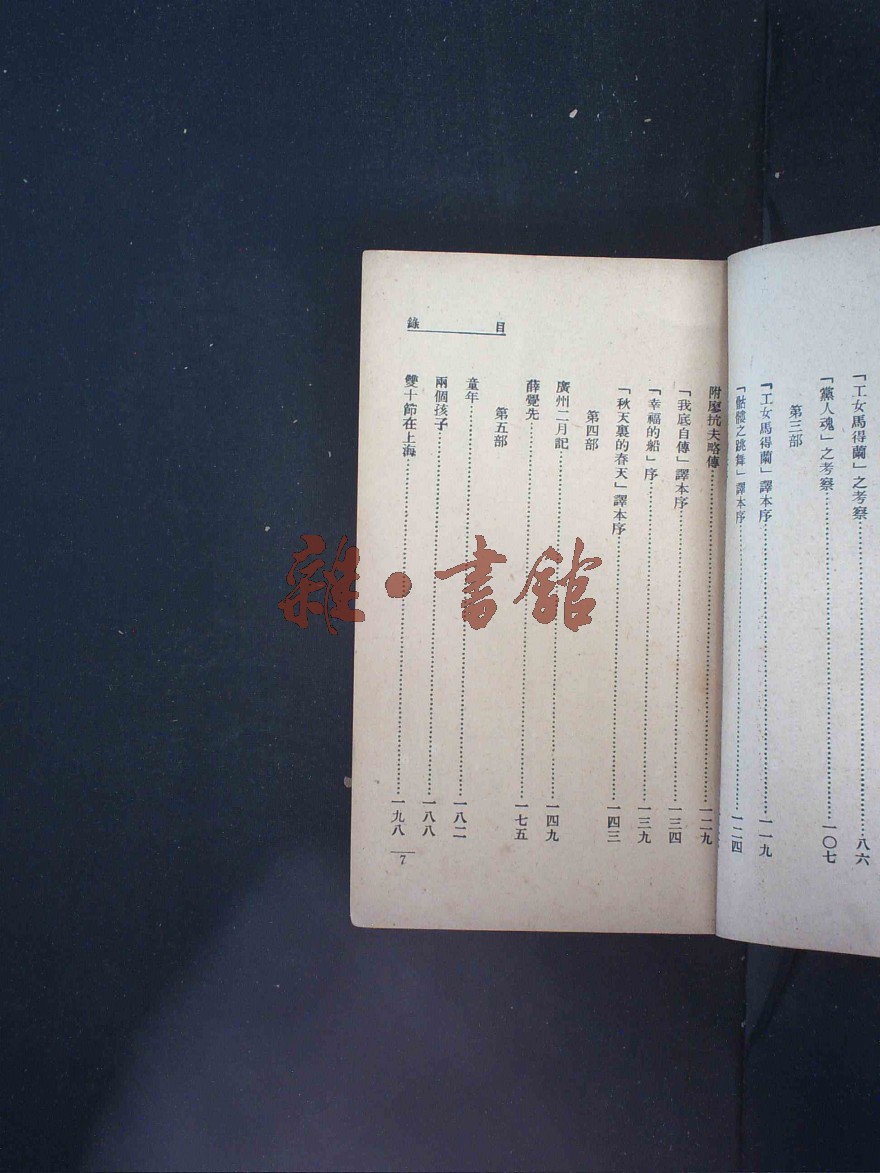 「工女馬得蘭」之考察……八六
「黨人魂」之考察……一〇七
第三部
「工女馬得蘭」譯本序……一一九
「骷髏之跳舞」譯本序……一二四
目錄
附廖抗夫略傳……一二九
「我底自傳」譯本序……一三四
「幸福的船」序……一三九
「秋天裏的春天」譯本序……一四三
第四部
廣州二月記……一四九
薛覺先……一七五
第五部
童年……一八二
兩個孩子……一八八
雙十節在上海……一九八
7
雜·書館